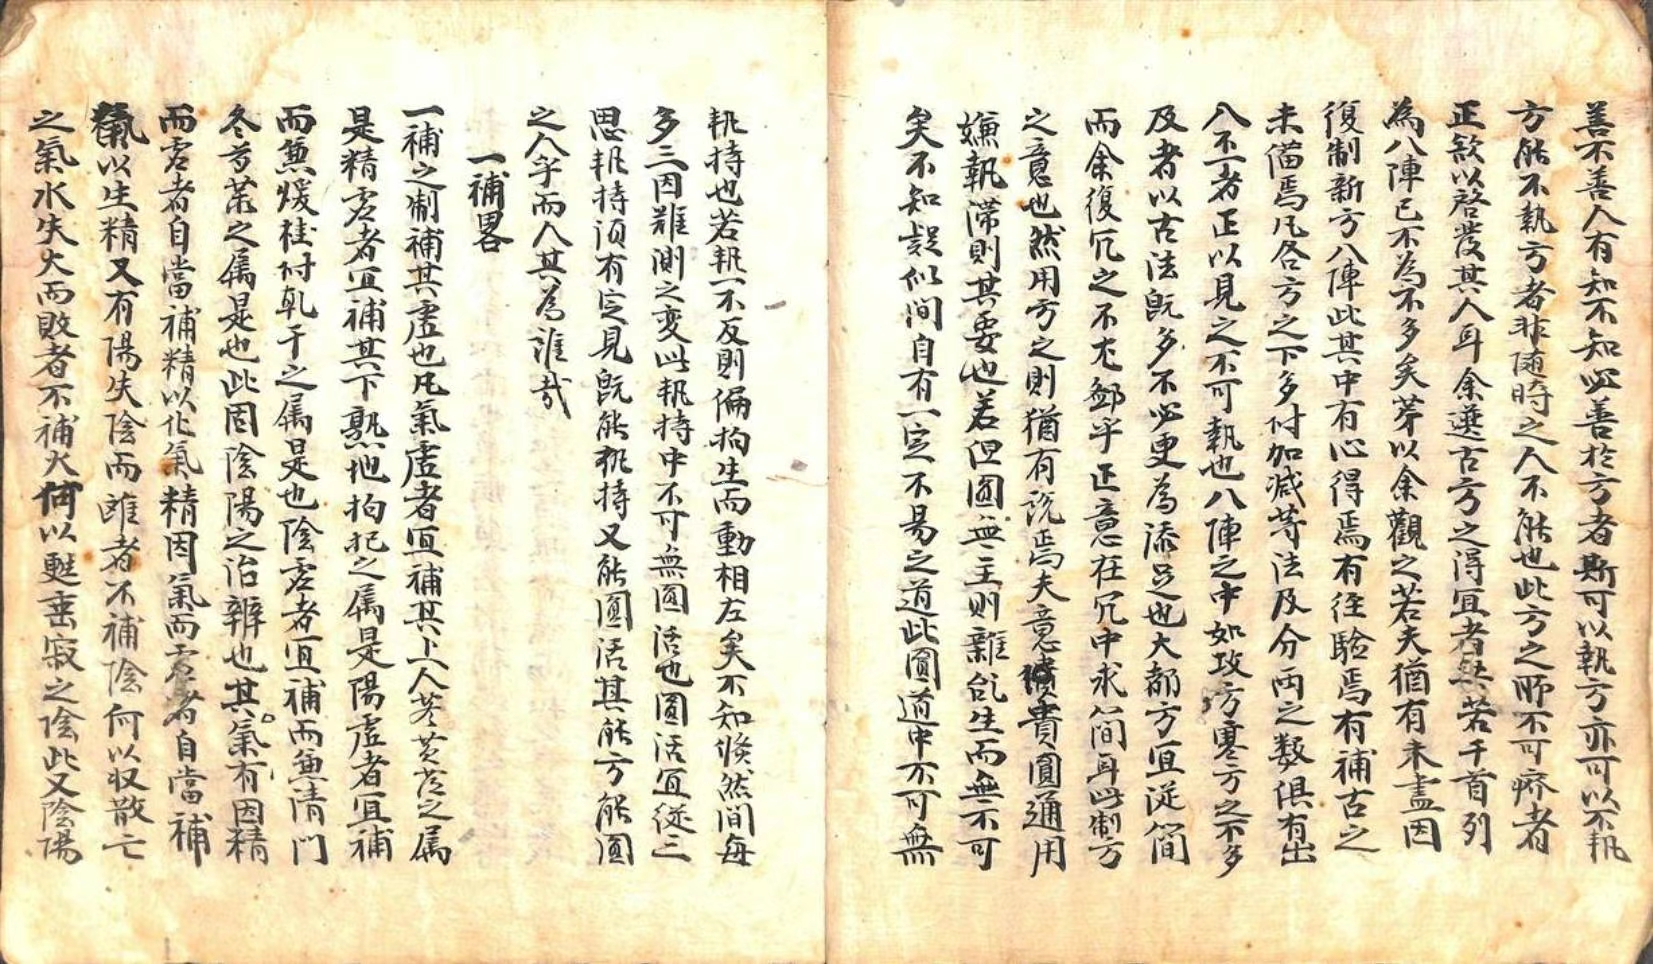 善不善人有知不知必善於方者斯可以執方亦可以不執
方能不執方者非隨時之人不能也此方之師不可瘠者
正欲以啓發其人耳余選古方之得宜者共若干首列
為八陣已不為不多矣茅以余觀之若夫猶有未盡因
復制新方八陣此其中有心得焉有徃驗焉有補古之
未偹焉凢各方之下多付加减等法及分両之数俱有出
入不一者正以見之不可執也八陣之中如攻方寒方之不多
及者以古法既多不必更為添足也大都方宜従簡
而余復冗之不尤鄙乎正意在冗中求簡耳此制方
之意也然用方之則猶有説焉夫意貴圓通用
嫌執滞則其要也若但圓無主則雜乱生而無不可
矣不知疑似間自有一定不易之道此圓道中不可無
執持也若執一不反則偏拘生而動相左矣不知倐然間每
多三因難測之変此執持中不可無圓活也圓活宜従三
思執持須有定見既能執持又能圓活其能方能圓
之人乎而人其為誰哉
一補畧
一補之制補其虛也凢氣虛者宜補其上人参黃芪之属
是精虛者宜補其下熟地拘杞之属是陽虛者宜補
而兼煖桂付乹干之属是也陰虛者宜補而兼清門
冬芍茱之属是也此固陰陽之治辨也其氣有因精
而虛者自當補精以化氣精因氣而虛者自當補
氣以生精又有陽失陰而離者不補陰何以収散亡
之氣水失火而敗者不補火何以甦垂寂之陰此又陰陽